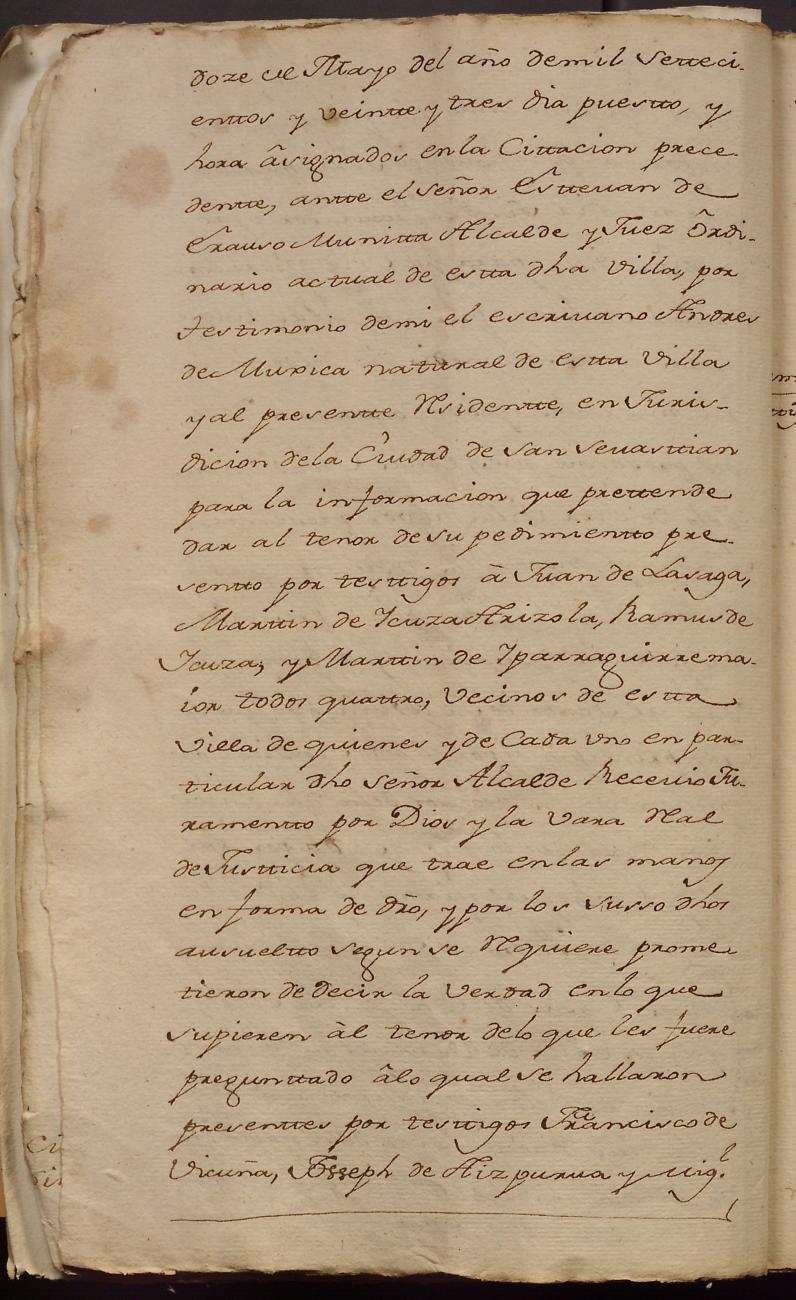 doze de Mayo del año demil Setteci-
enttos y veintte y tres dia puestto, y
hora âsignados en la Cittacion prece-
dentte, antte el señor Esttevan de
Erauso Munitta Alcalde y Juez Ôrdi-
nario actual de estta dha Villa, por
testimonio demi el escrivano Andres
de Muxica natural de estta Villa
y al presentte Residentte, en Juris-
dicion dela Ciudad de San Sevasttian
para la informacion que prettende
dar al tenor de su pedimientto pre-
sentto por testtigos â Juan de Lasaga,
Marttin de Ycuza Arizola, Ramus de
Ycuza, y Marttin de Yparraguirre ma-
ior todos quattro, Vecinos de estta
Villa de quienes y de Cada vno en par-
ticular dho Señor Alcalde Recevio Ju-
ramentto por Dios y la Vara Real
de Justticia que trae en las manos
en forma de dro, y por los Susso dhos
ausueltto segun se Requiere prome-
tieron de Decir la Verdad en lo que
supieren àl tenor delo que les fuere
pregunttado âlo qual se hallaron
presenttes por testtigos Francisco de
Vicuña, Josseph de Aizpurua y Migl.
Ci